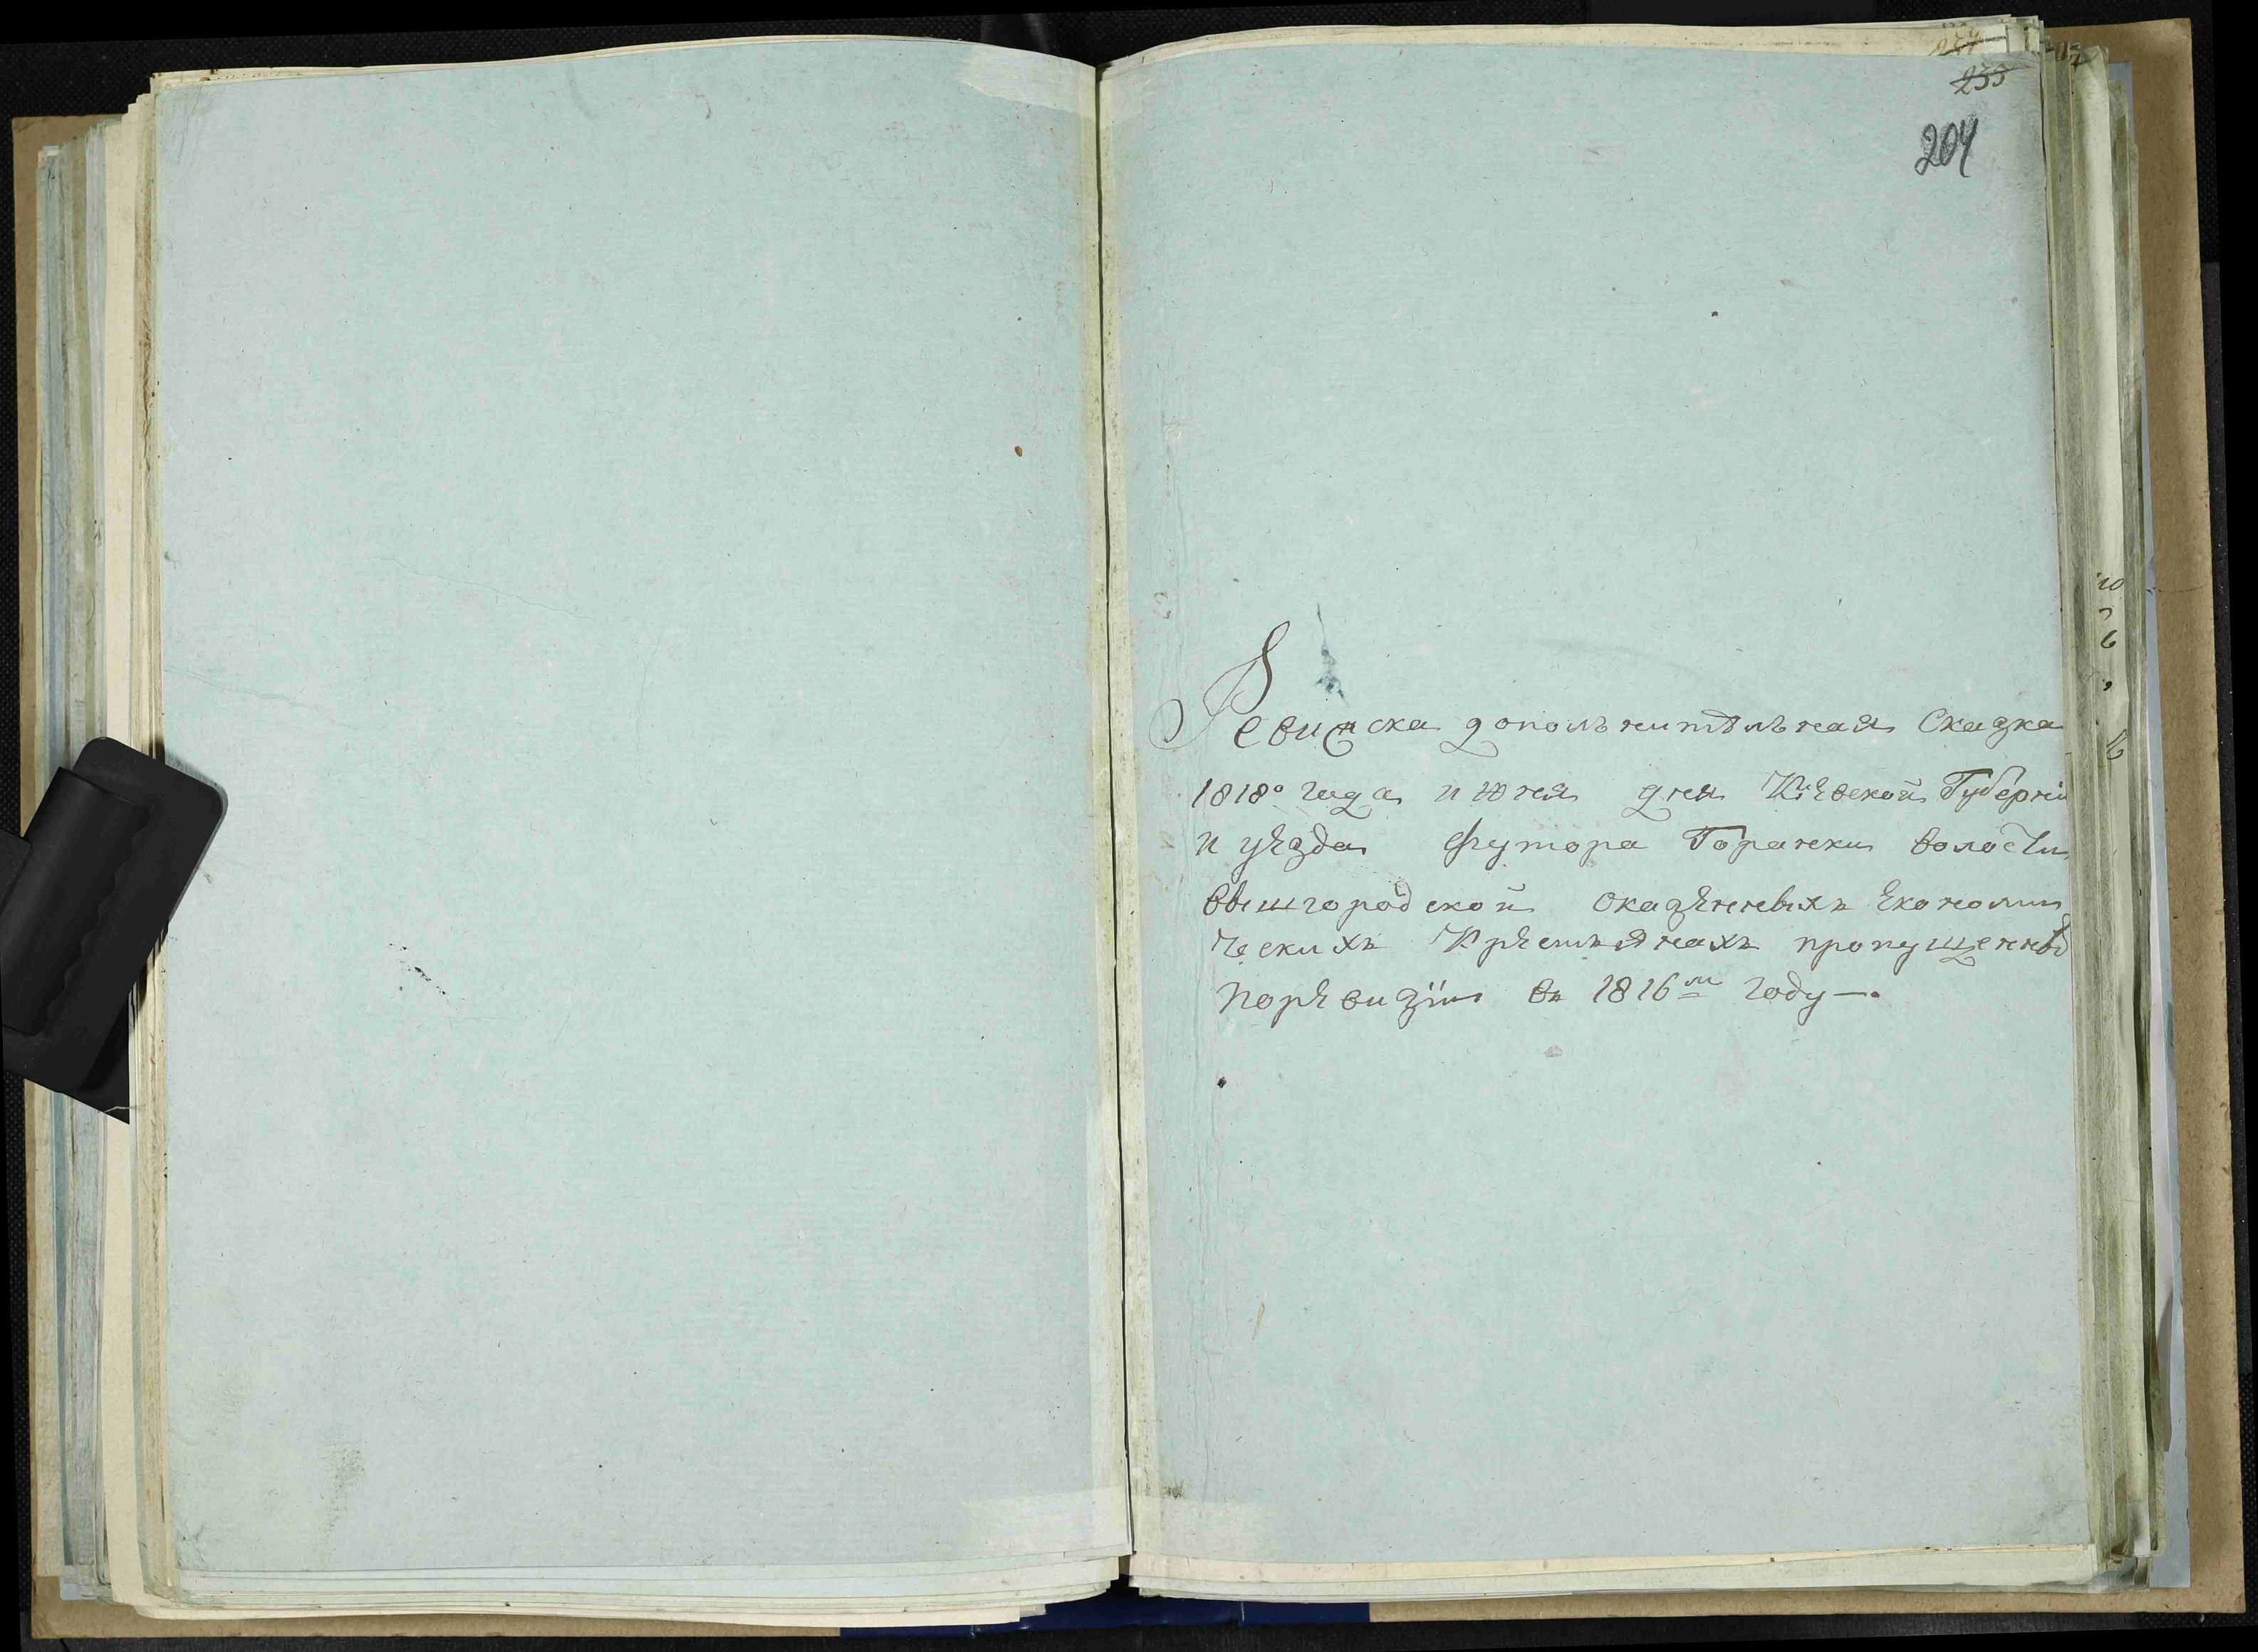 255
204
Ревизска дополънитѣлъная Сказка
1818º года июня дня Киѣвской Губернiи
и уѣзда футора Горанки волости
ввышгородской оказѣнныхъ Економи
ческихъ Крѣстьянахъ пропущенны
порѣвизiи въ 1816м году —.